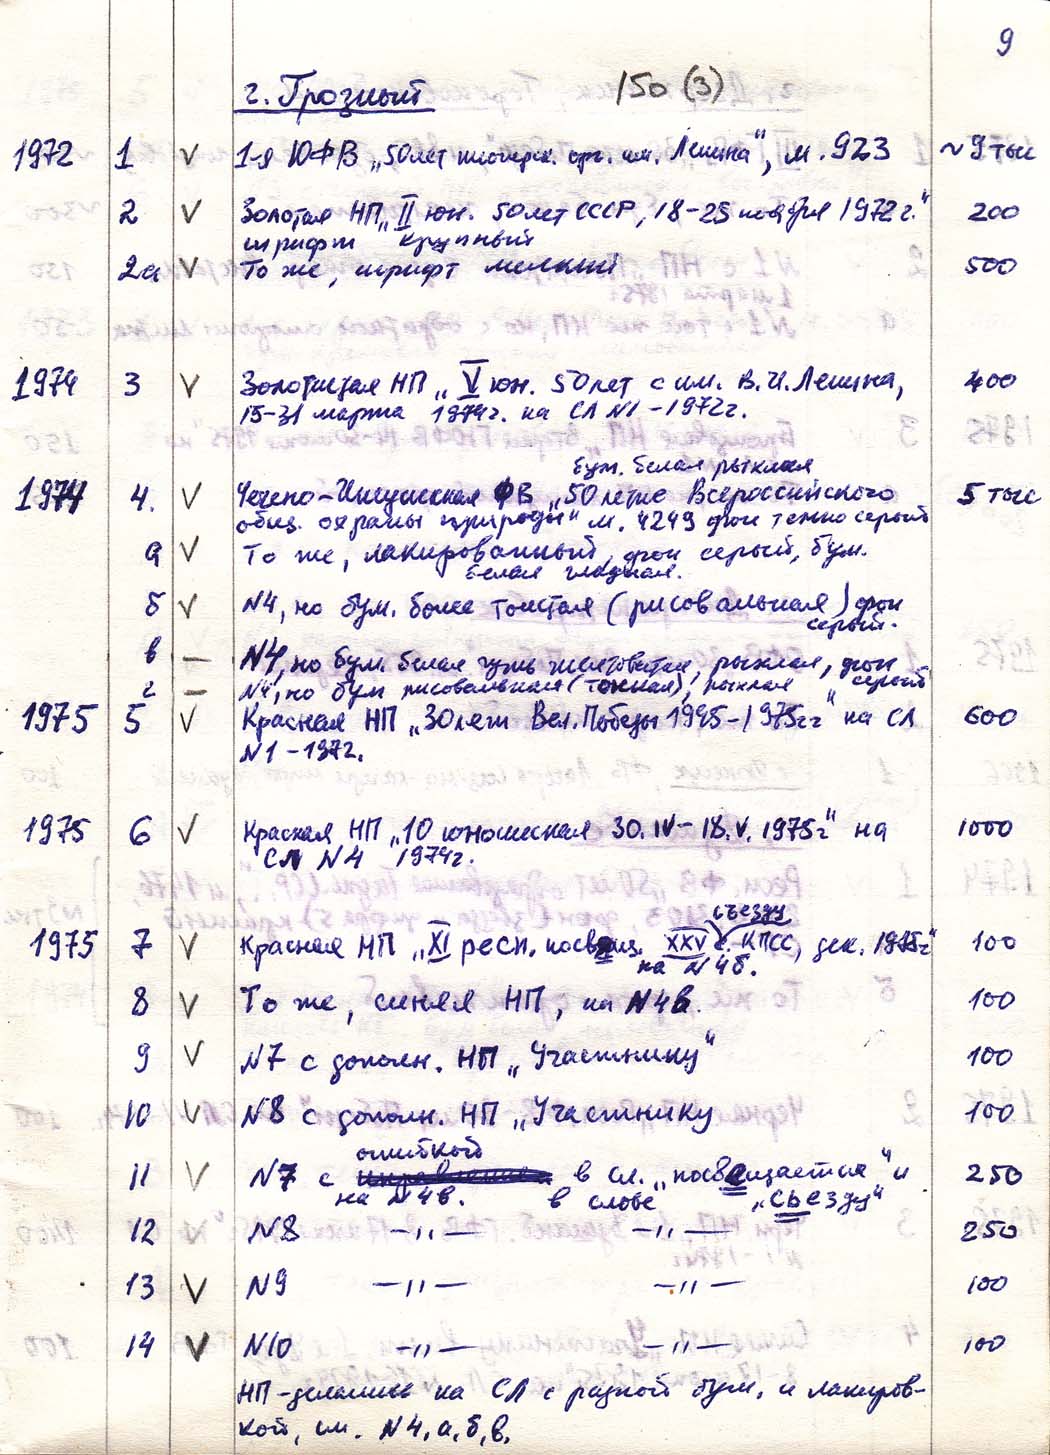 9
г. Грозный 150 (3)
1972 1 V 1-я ЮФВ „50 лет пионерск. орг. им. Ленина", м. 923 ~9 тыс
2 V Золотая НП „II юн. 50 лет СССР, 18-25 ноября 1972 г." 200
шрифт крупный
2а V То же, шрифт мелкий 500
1974 3 V Золотистая НП „V юн. 50 лет с им. В.И. Ленина, 400
15-31 марта 1974г. на СЛ N1-1972г.
бум. белая рыхлая
1974 4. V Чечено-Ингушская ФВ „50 летие Всероссийского 5 тыс
общ. охраны природы" м. 4249 фон темно серый
а V То же, лакированный, фон серый, бум.
белая гладкая.
б V N4, но бум. более толстая (рисовальная) фон
серый.
в — N4, но бум. белая чуть желтоватая, рыхлая, фон
серый
г — N4, но бум рисовальная (тонкая), рыхлая "
1975 5 V Красная НП „30 лет Вел. Победы 1945-1975гг" на СЛ 600
N1-1972.
1975 6 V Красная НП „10 юношеская 30.IV-18.V.1975г" на 1000
СЛ N4 1974г.
съезду
1975 7 V Красная НП „XI респ. посвящ. XXV с. КПСС, дек. 1975г" 100
на N4б.
8 V То же, синяя НП, на N4в. 100
9 V N7 с дополн. НП „Участнику" 100
10 V N8 с дополн. НП „Участнику 100
ошибкой
11 V N7 с в сл. „посвещается" и 250
на N4в. в слове „сьезду"
12 V N8 —〃— —〃— 250
13 V N9 —〃— —〃— 100
14 V N10 —〃— —〃— 100
НП-делались на СЛ с разной бум. и лакиров-
кой, см. N4, а, б, в.